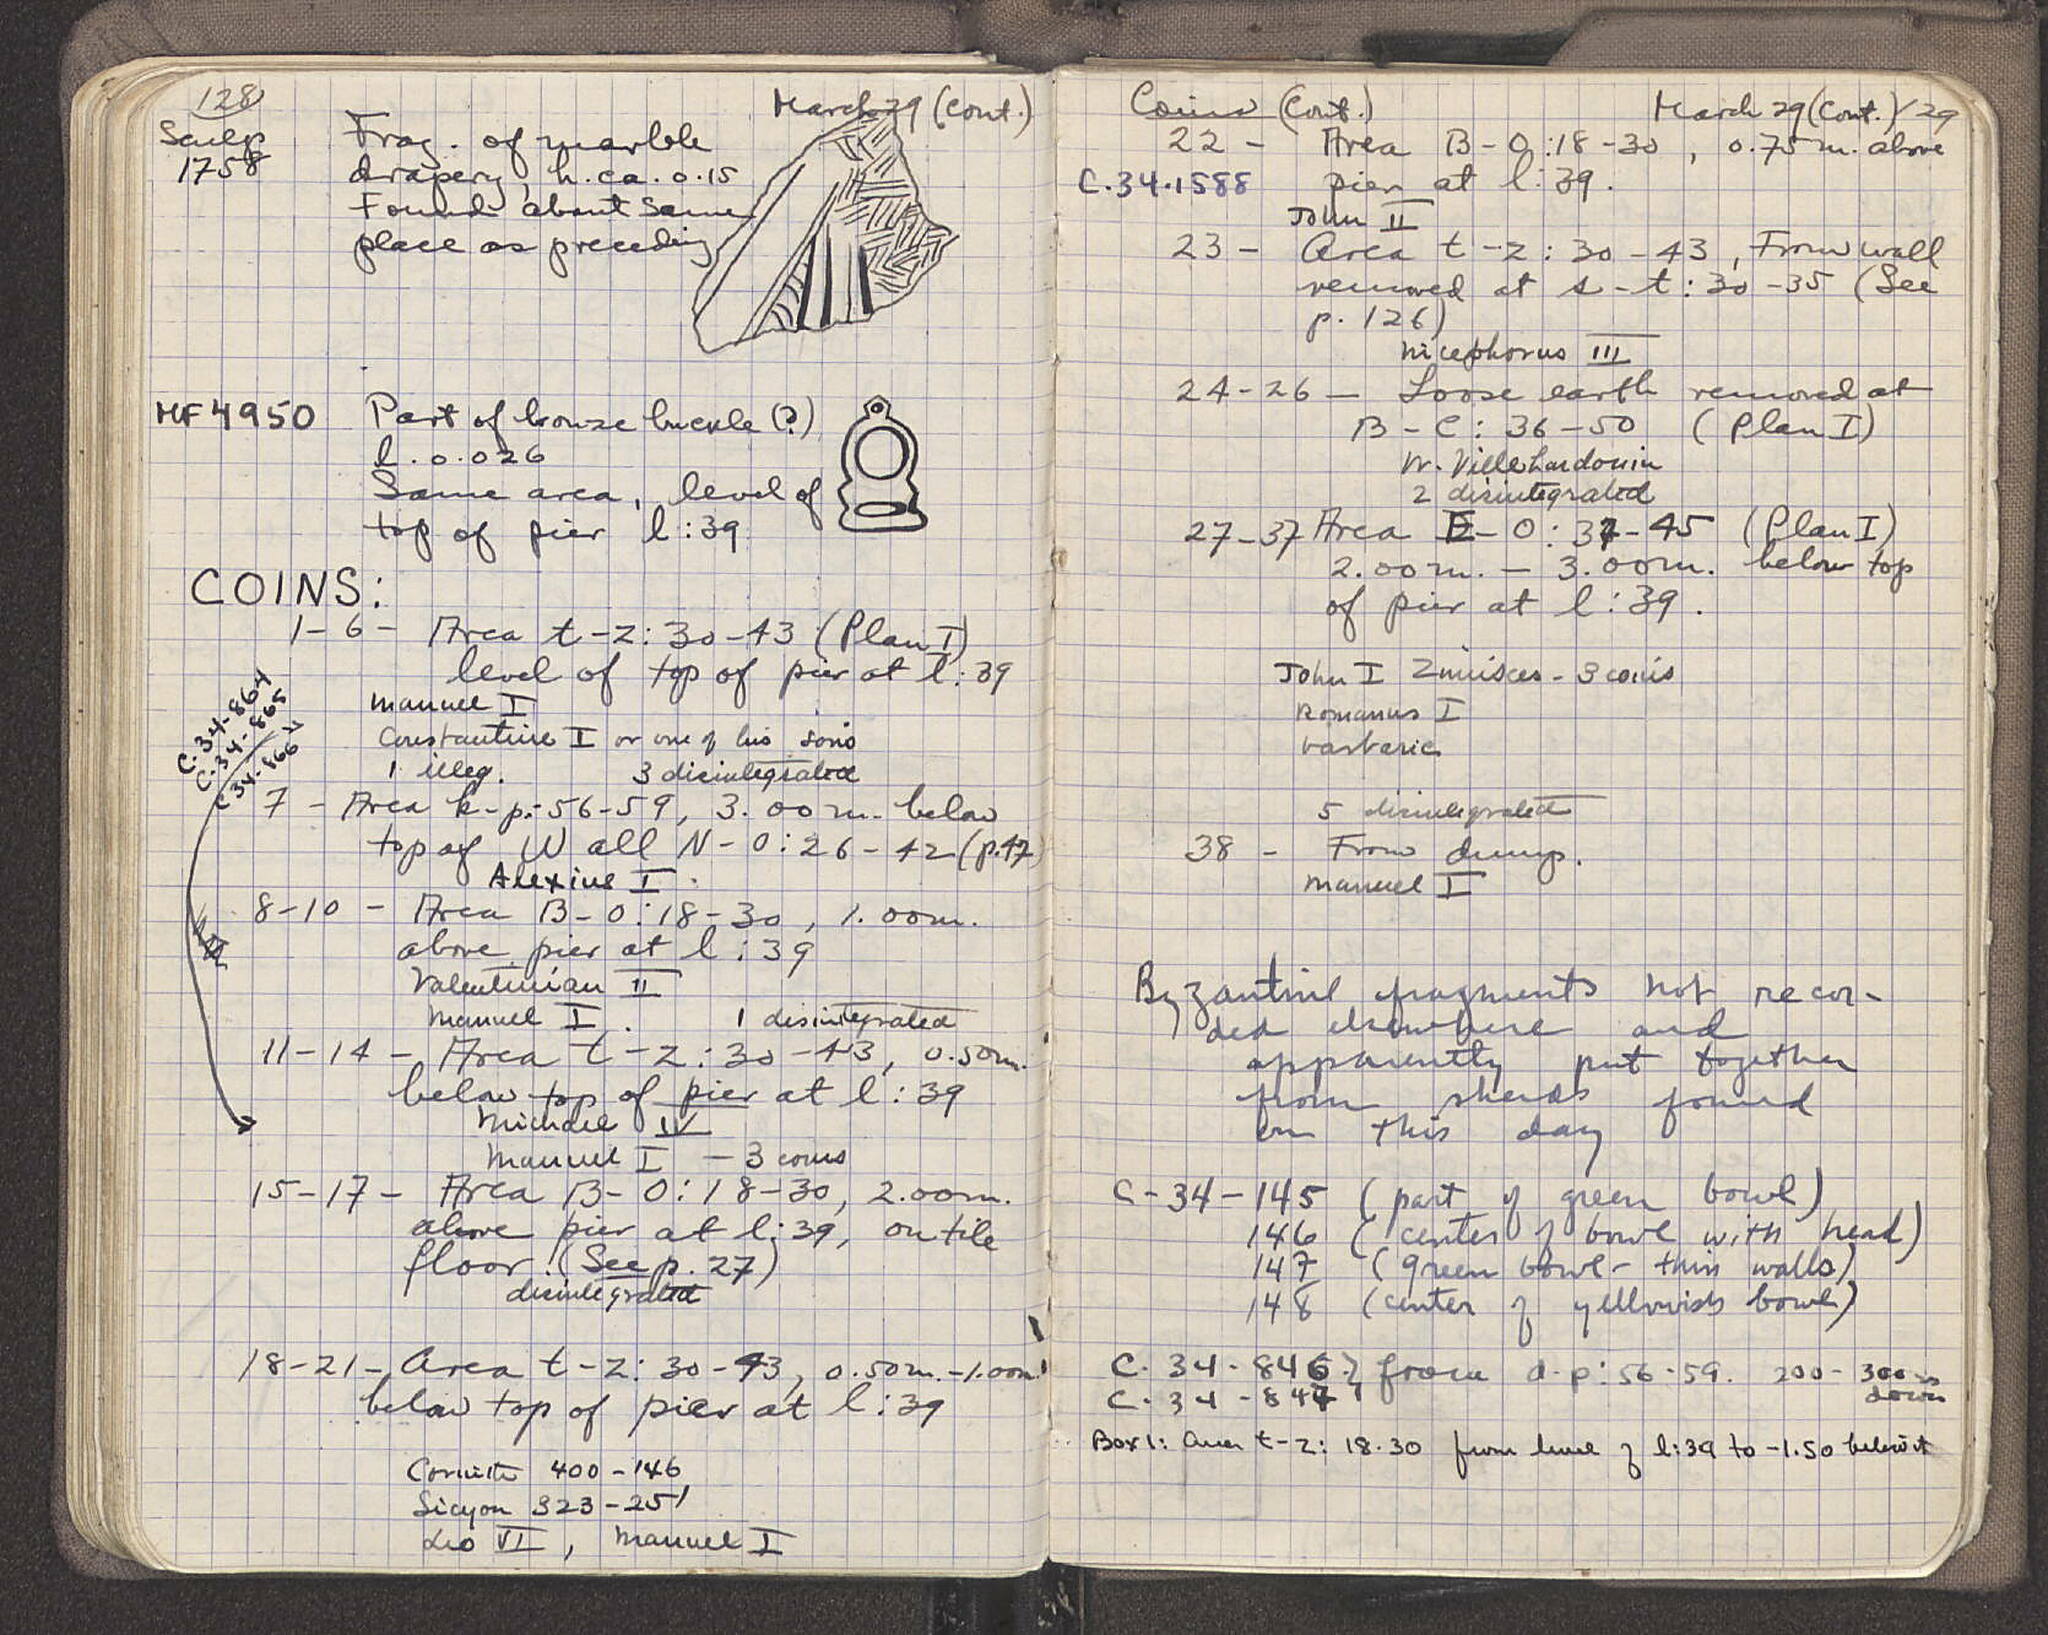 128
March 29 (Cont.)
Sculp
1758
Frag. of marble
drapery, h. ca. 0.15
Found about same
place as preceding
MF 4950
Part of bronze buckle (?)
l. 0.026
Same area, level of
top of pier l:39
COINS:
1-6- Area t-z: 30-43 (Plan I)
level of top of pier at l:39
Manuel I
Constantine I or one of his sons
1 illeg. 3 disintegrated
C.34-864
C.34-865
C34-866
7 - Area k-p: 56-59, 3.00m. below
top of Wall N-O: 26-42 (p.47)
Alexius I.
8-10 - Area B-O: 18-30, 1.00m.
above pier at l:39
Valentinian II
Manuel I. 1 disintegrated
11-14 - Area t-z: 30-43, 0.50m.
below top of pier at l:39
Michael IV
Manuel I - 3 coins
15-17- Area B-O: 18-30, 2.00m.
above pier at l:39, on tile
floor. (See p. 27)
disintegrated
18-21- Area t-z: 30-43, 0.50m.-1.00m
below top of pier at l:39
Corinth 400-146
Sicyon 323-251
Leo VI, Manuel I
Coins (Cont.) March 29 (Cont.) 129
22 - Area B-O: 18-30, 0.75m. above
C.34.1588 pier at l:39.
John II
23 - Area t-z: 30-43, From wall
removed at s-t: 30-35 (See
p. 126)
Nicephorus III
24-26 - Loose earth removed at
B-C: 36-50 (Plan I)
W. Villehardouin
2 disintegrated
27-37 Area E-O: 37-45 (Plan I)
2.00m. - 3.00m. below top
of pier at l:39.
John I Zimisces - 3 coins
Romanus I
barbaric
5 disintegrated
38 - From dump.
Manuel I
Byzantine fragments not recor-
ded elsewhere and
apparently put together
from sherds found
on this day
C-34-145 (part of green bowl)
146 (center of bowl with head)
147 (green bowl - thin walls)
148 (center of yellowish bowl)
C. 34-846 } from d-p: 56-59. 200-300m
C. 34-847 down
Box 1: Area t-z: 18-30 from level of l:39 to -1.50 below it